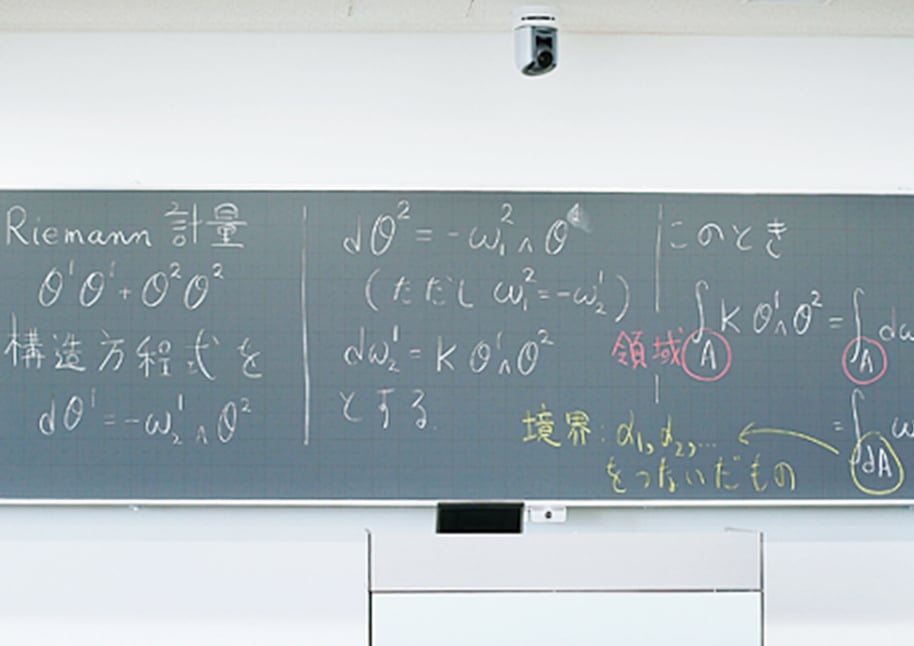 Riemann 計量
θ¹θ¹ + θ²θ²
構造方程式を
dθ¹ = -ω₂¹ ∧ θ²
dθ² = -ω₁² ∧ θ¹
(ただし ω₁² = -ω₂¹)
dω₂¹ = K θ¹∧θ²
とする.
このとき
∫_A K θ¹∧θ² = ∫_A dω
領域
= ∫_dA ω
境界: α₁, α₂, ...
をつないだもの